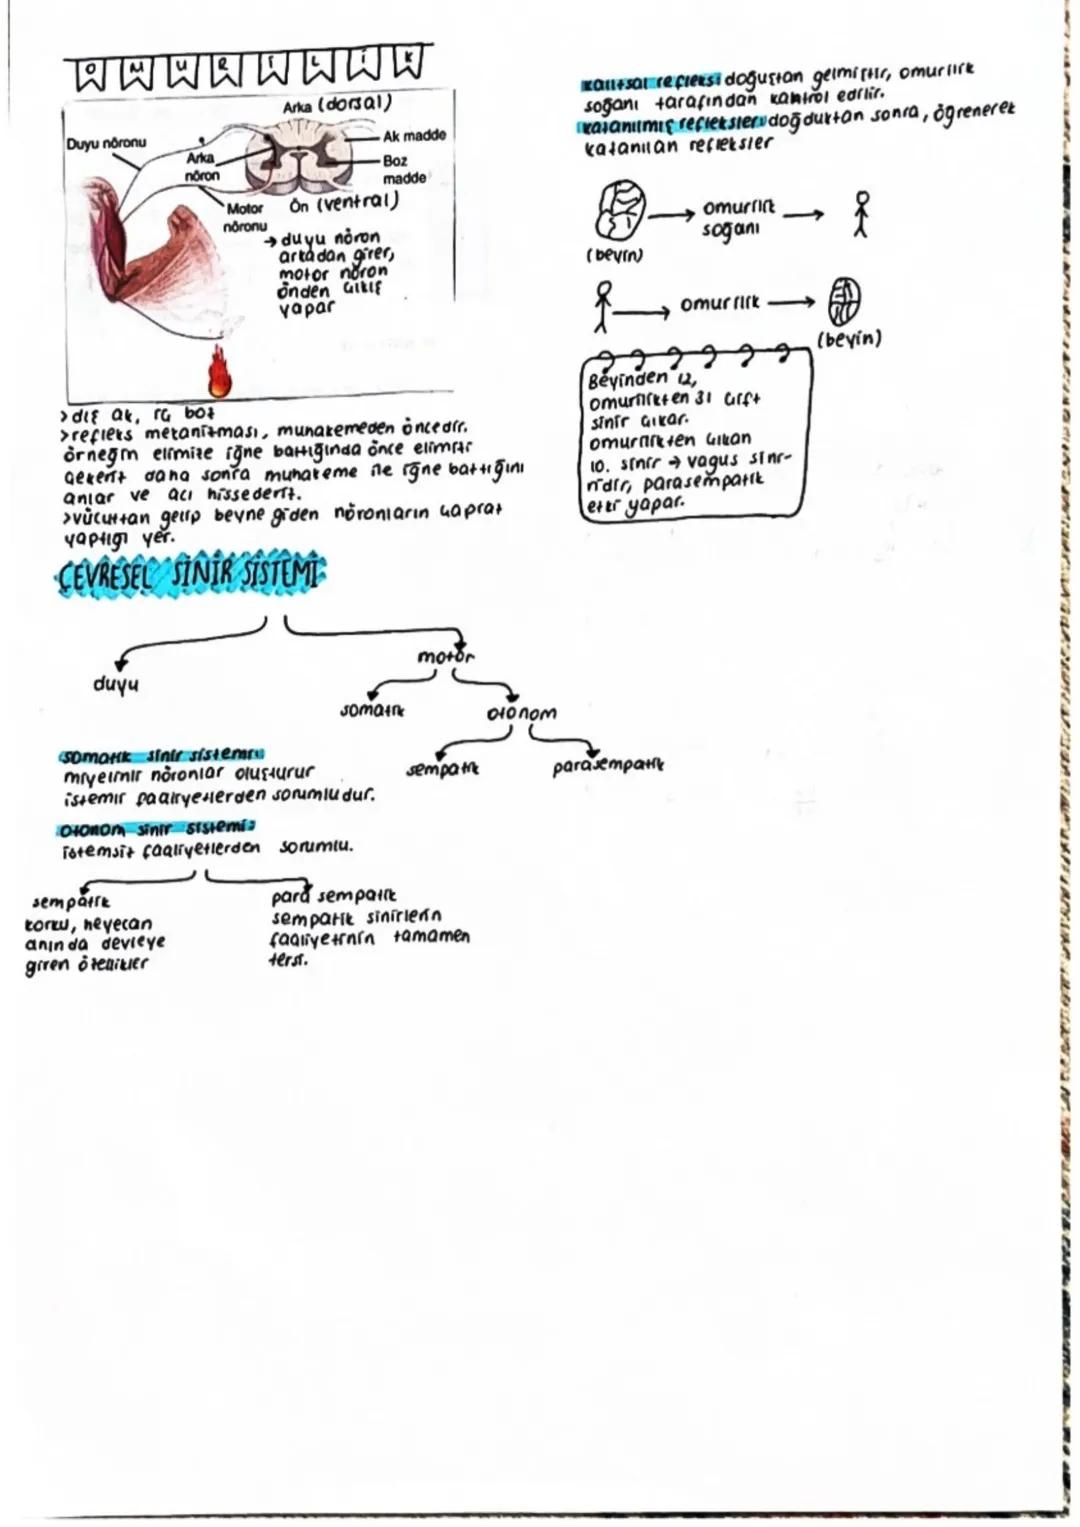 OMURİLİK
Arka (dorsal)
Duyu nöronu
Ak madde
Arka
nöron
Boz
madde
Motor
nöronu
Ön (ventral)
→ duyu nöron
arkadan girer,
motor nöron
önden çıkış
yapar
>dış ak, iç boz
>refleks mekanizması, muhakemeden öncedir.
örneğin elimize iğne battığında önce elimizi
çekeriz daha sonra muhakeme ile iğne battığını
anlar ve acı hissederiz.
>vücuttan gelip beyne giden nöronların çapraz
yaptığı yer.
kalıtsal refleks: doğuştan gelmiştir, omurilik
soğanı tarafından kontrol edilir.
kazanılmış refleksler: doğduktan sonra, öğrenerek
kazanılan refleksler
(beyin) → omurilik soğanı →
→ omurilik → (beyin)
Beyinden 12,
omurilikten 31 çift
sinir çıkar.
omurilikten çıkan
10. sinir → vagus sini-
ridir, parasempatik
etki yapar.
ÇEVRESEL SİNİR SİSTEMİ
duyu
motor
somatik
otonom
sempatik
parasempatik
somatik sinir sistemi:
miyelinli nöronlar oluşturur
istemli faaliyetlerden sorumludur.
otonom sinir sistemi:
istemsiz faaliyetlerden sorumlu.
sempatik
korku, heyecan
anında devreye
giren özellikler
para sempatik
sempatik sinirlerin
faaliyetinin tamamen
tersi.